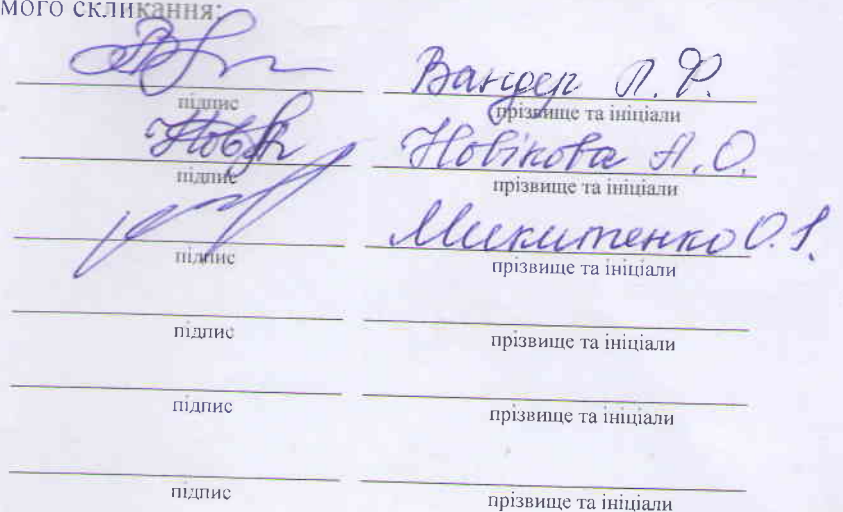 мого скликання:
Вандер Л. Ф.
підпис прізвище та ініціали
Новікова А. О.
підпис прізвище та ініціали
Микитенко О.
підпис прізвище та ініціали
підпис прізвище та ініціали
підпис прізвище та ініціали
підпис прізвище та ініціали